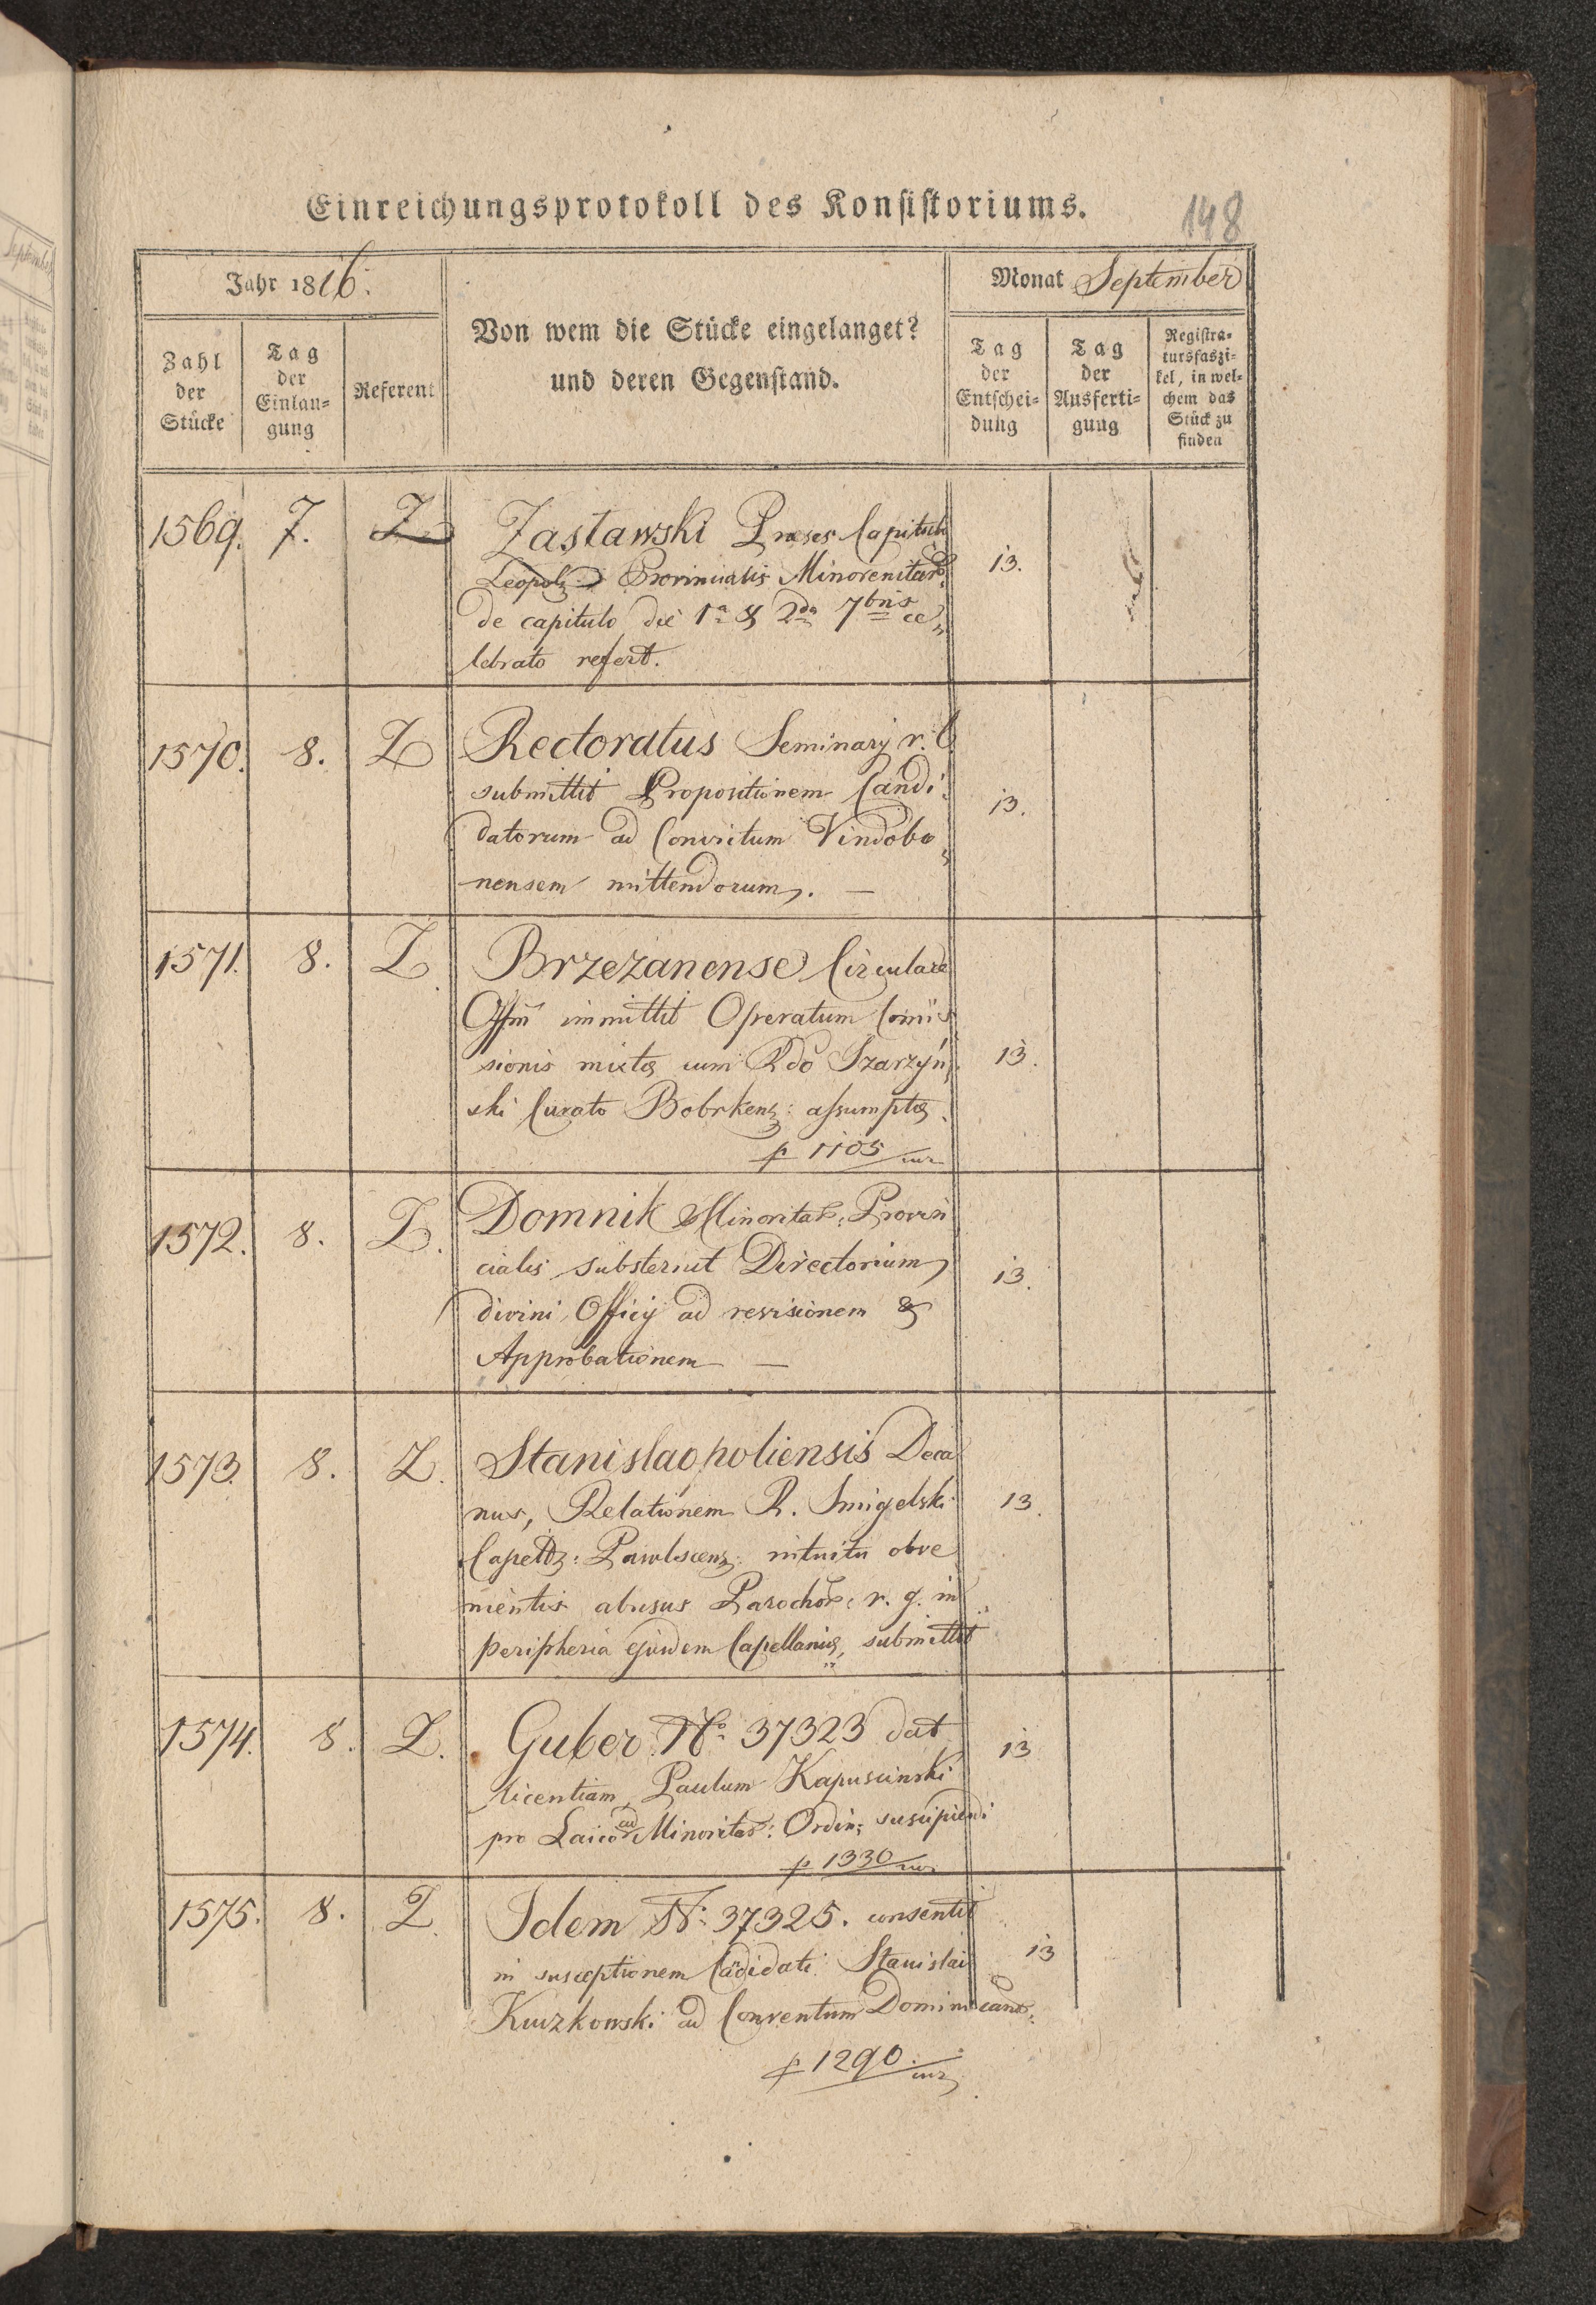 Einreichungsprotokoll des Konsistoriums.
148
Jahr 1816.
Monat September
Zahl der Stücke
Tag der Einlangung
Referent
Von wem die Stücke eingelanget?
und deren Gegenstand.
Tag der Entscheidung
Tag der Ausfertigung
Registratursfaszikel, in welchem das Stück zu finden
1569. 7. Z Zasławski Præses Capituli
Leopol: Provincialis Minorenitar: 13.
de capitulo die 1a & 2da 7bris ce„
lebrato refert.
1570. 8. Z Rectoratus Seminarij r. l.
submittit Propositionem Candi„
datorum ad Convictum Vindobo„ 13.
nensem mittendorum. —
1571. 8. Z. Brzezanense Circulare
Offm immittit Operatum Comis
sionis mixtæ cum Rdo Szarzyń„ 13.
ski Curato Bobrkens: assumptæ.
p 1105
1572. 8. Z. Domnik Minoritar: Provin
cialis substernit Directorium 13.
divini Officij ad revisionem &
Approbationem —
1573. 8. Z. Stanislaopoliensis Deca
nus, Relationem R. Smigelski 13.
Capell: intuitu obve
nientis abusus Parochor: r. g. in
peripheria ejusdem Capellaniæ, submittit
1574. 8. Z. Guber. No. 37323 dat 13
licentiam Paulum Kapuscinski
pro Laico ad Minoritar: Ordin: suscipiendi
p 1330
1575. 8. Z. Idem N: 37325. consentit
in susceptionem Cadidati Stanislai 13
Kuczkowski ad Conventum Dominicano:
p 1290.